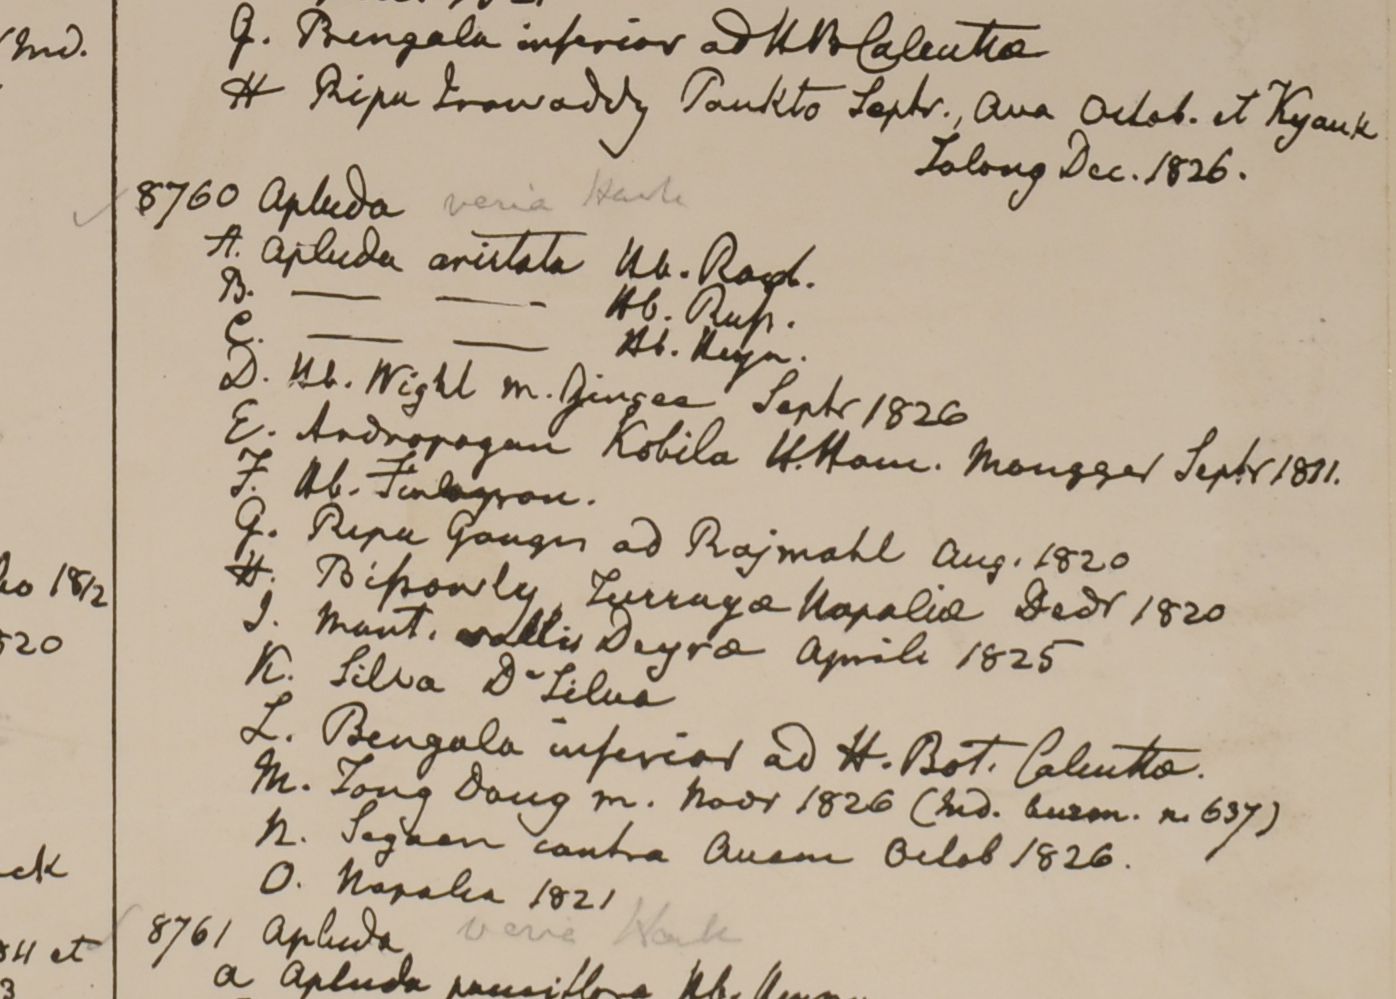 Ind.
G. Bengala inferior ad H B Calcutta
H Ripa Irawaddy Toukto Septr., Ava Octob. et Kyouk
Tolong Dec. 1826.
8760 Apluda varia Hack
A. Apluda aristata Hb. Roxb.
B. — — Hb. Rup.
C. — — Hb. Heyn.
D. Hb. Wight m. Gingee Septr 1826
E. Andropogon Kobila H. Ham. Mongger Septr 1811.
F. Hb. Finlayson.
G. Ripa Gangis ad Rajmahl Aug. 1820
H. Bissowly Napalia Decr 1820
I. Mont. vallis Deyra Aprile 1825
K. Silva D-Silva
L. Bengala inferior ad H. Bot. Calcutta.
M. Tong Doug m. Novr 1826 (Ind. burm. n. 637)
N. Segaen contra Avam Octob 1826.
O. Napalia 1821
8761 Apluda varia Hack
a Apluda pauciflora Hb. Heyn
1812
820
ck
et
3